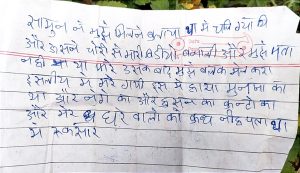 सामुन ने मुझे मिलने बुलाया था में चलि गयी थि
और उसने चोरी से मारी वडीयो बनाली और मुझे पता
नही था और फीर उसके बाद मुझे बलेक मेल करा
इसलीय में मेरे गापी इस में हाथा मुनना का
था और नगे का और हसन का कुन्टी का
और मेरे घर वालो को कुछ नीह पता था
में रुकसार